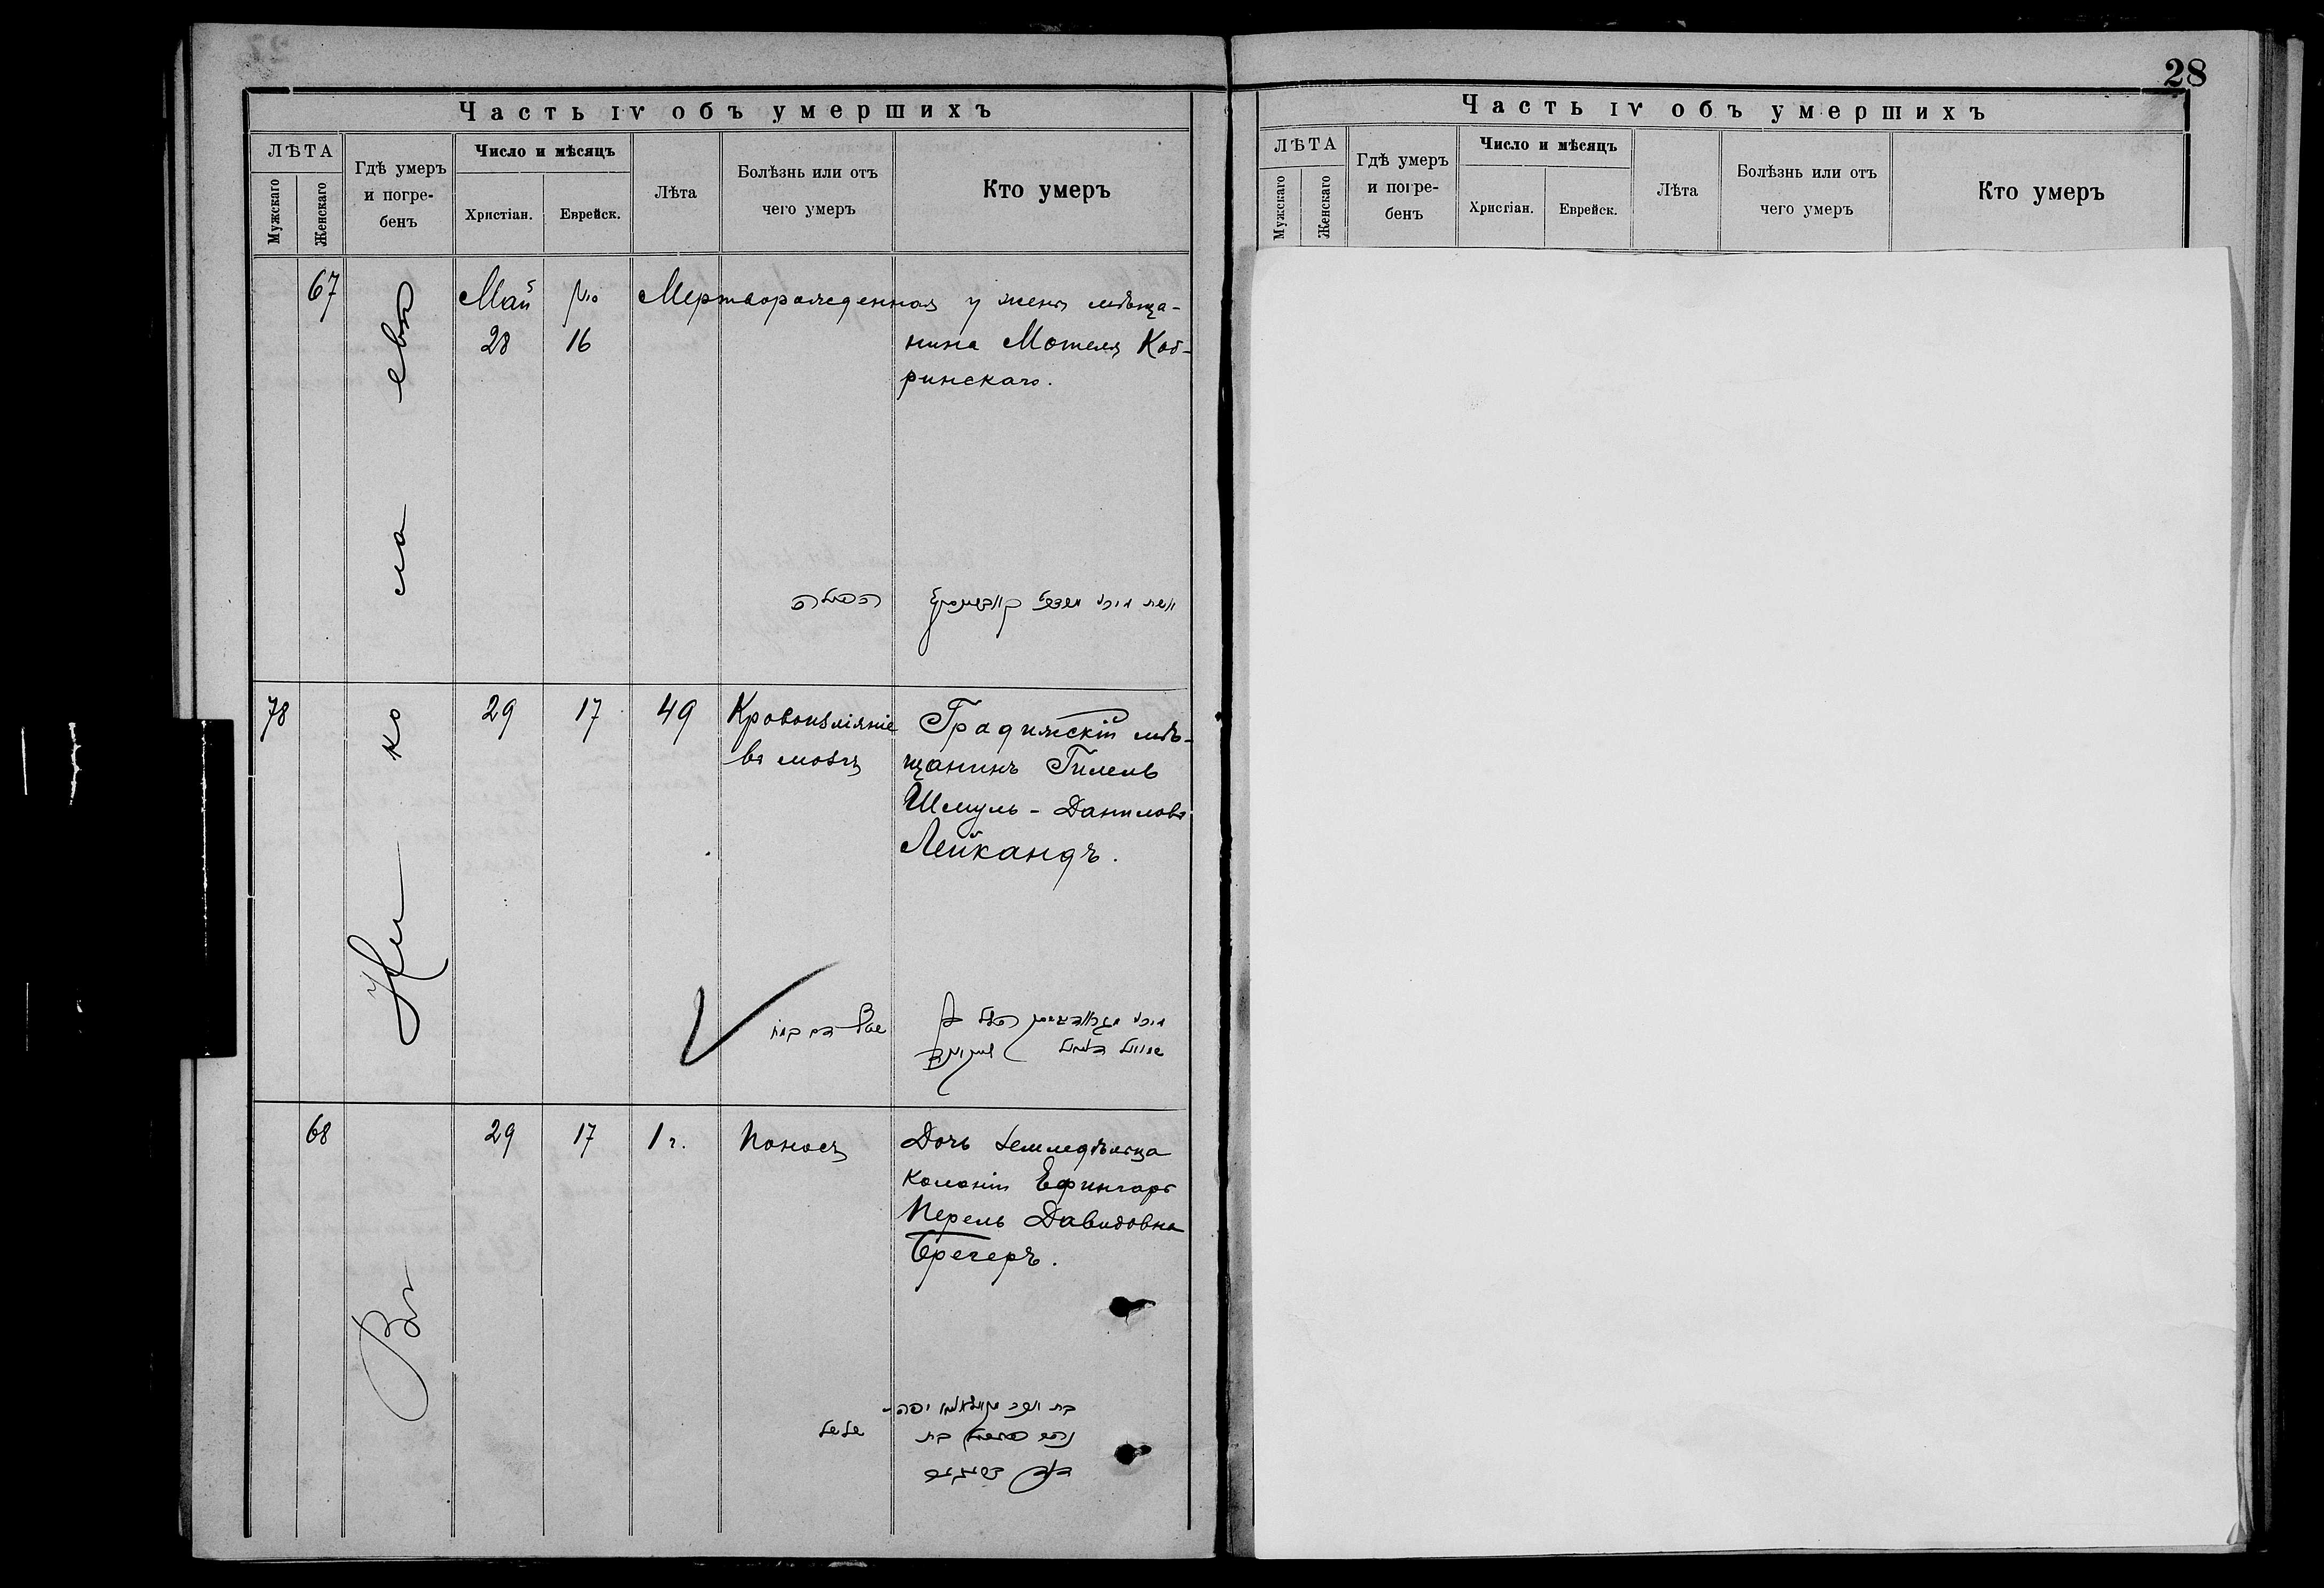 28
Часть IV объ умершихъ
ЛѢТА
Мужскаго
Женскаго
Гдѣ умеръ
и погре-
бенъ
Число и мѣсяцъ
Христіан.
Еврейск.
Лѣта
Болѣзнь или отъ
чего умеръ
Кто умеръ
Въ Николаевѣ
67
Май
28
16
Мертворожденная у жены мѣща-
нина Мотеля Коб-
ринскаго.
הפילה
78
29
17
49
Кровоизліяніе
въ мозгъ
Градижскій мѣ-
щанинъ Гилель
Шмуль-Даниловъ
Лейкандъ.
68
29
17
1 г.
Поносъ
Дочь земледѣльца
колоніи Ефингаръ
Перель Давидовна
Брегеръ.
שלשל
Часть IV объ умершихъ
ЛѢТА
Мужскаго
Женскаго
Гдѣ умеръ
и погре-
бенъ
Число и мѣсяцъ
Христіан.
Еврейск.
Лѣта
Болѣзнь или отъ
чего умеръ
Кто умеръ